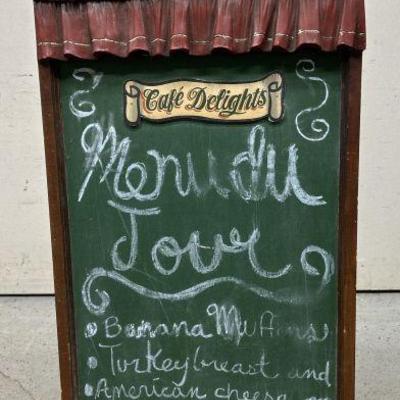 Café Delights
Menu du
Jour
• Banana Muffins
• Turkey breast and
• American cheese on